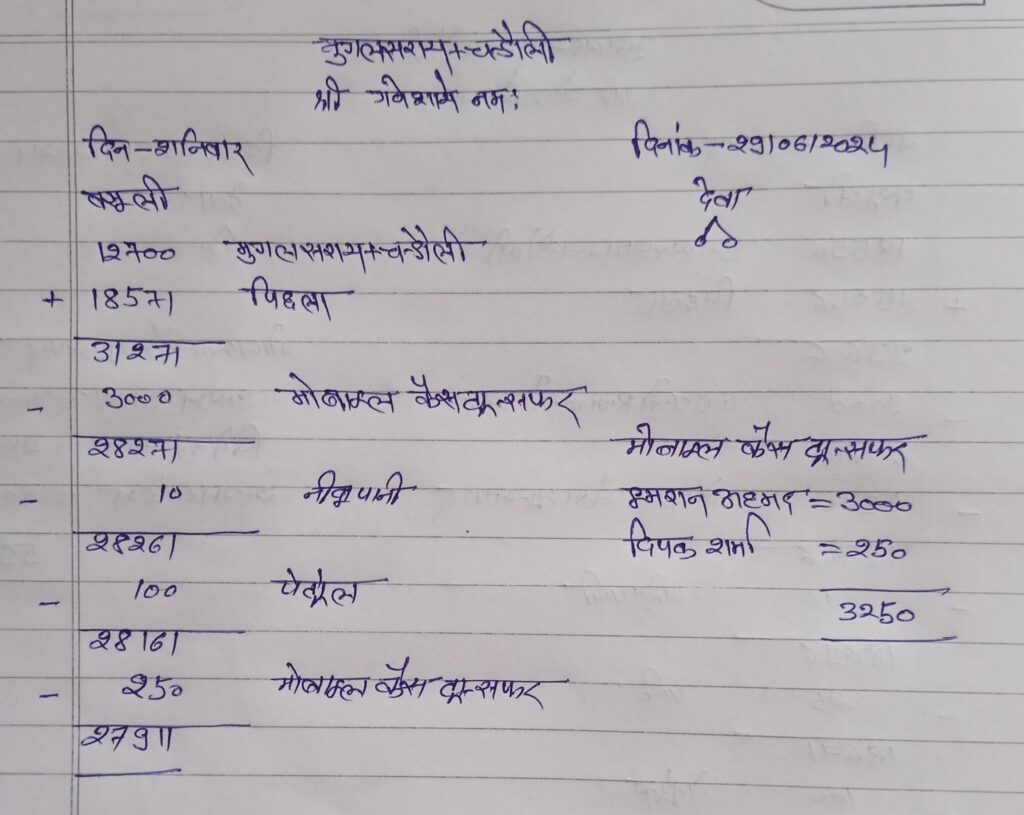 मुगलसराय+चन्दौली
श्री गणेशाये नमः
दिन-शनिवार दिनांक-29/06/2024
वसूली देवा
12700 मुगलसराय+चन्दौली
+ 18571 पिछला
31271
- 3000 मोबाइल कैस ट्रान्सफर
28271 मोबाइल कैस ट्रान्सफर
- 10 पानी इमरान अहमद = 3000
28261 दिपक शर्मा = 250
- 100 पेट्रोल 3250
28161
- 250 मोबाइल कैस ट्रान्सफर
27911